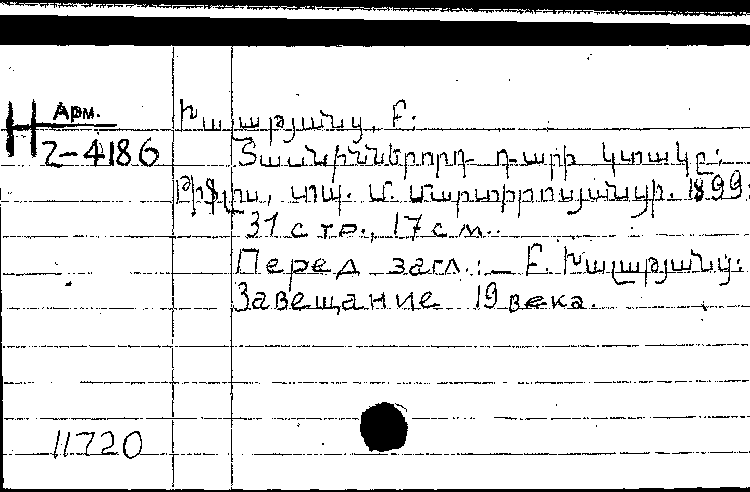 Арм.
Н 2-4186
Խալաթյանց, Բ.
Տասնիններորդ դարի կտակը:
Թիֆլիս, տպ. Մ. Մարտիրոսյանցի. 1899:
31 стр., 17 см..
Перед загл.: – Բ. Խալաթյանց:
Завещание 19 века.
11720